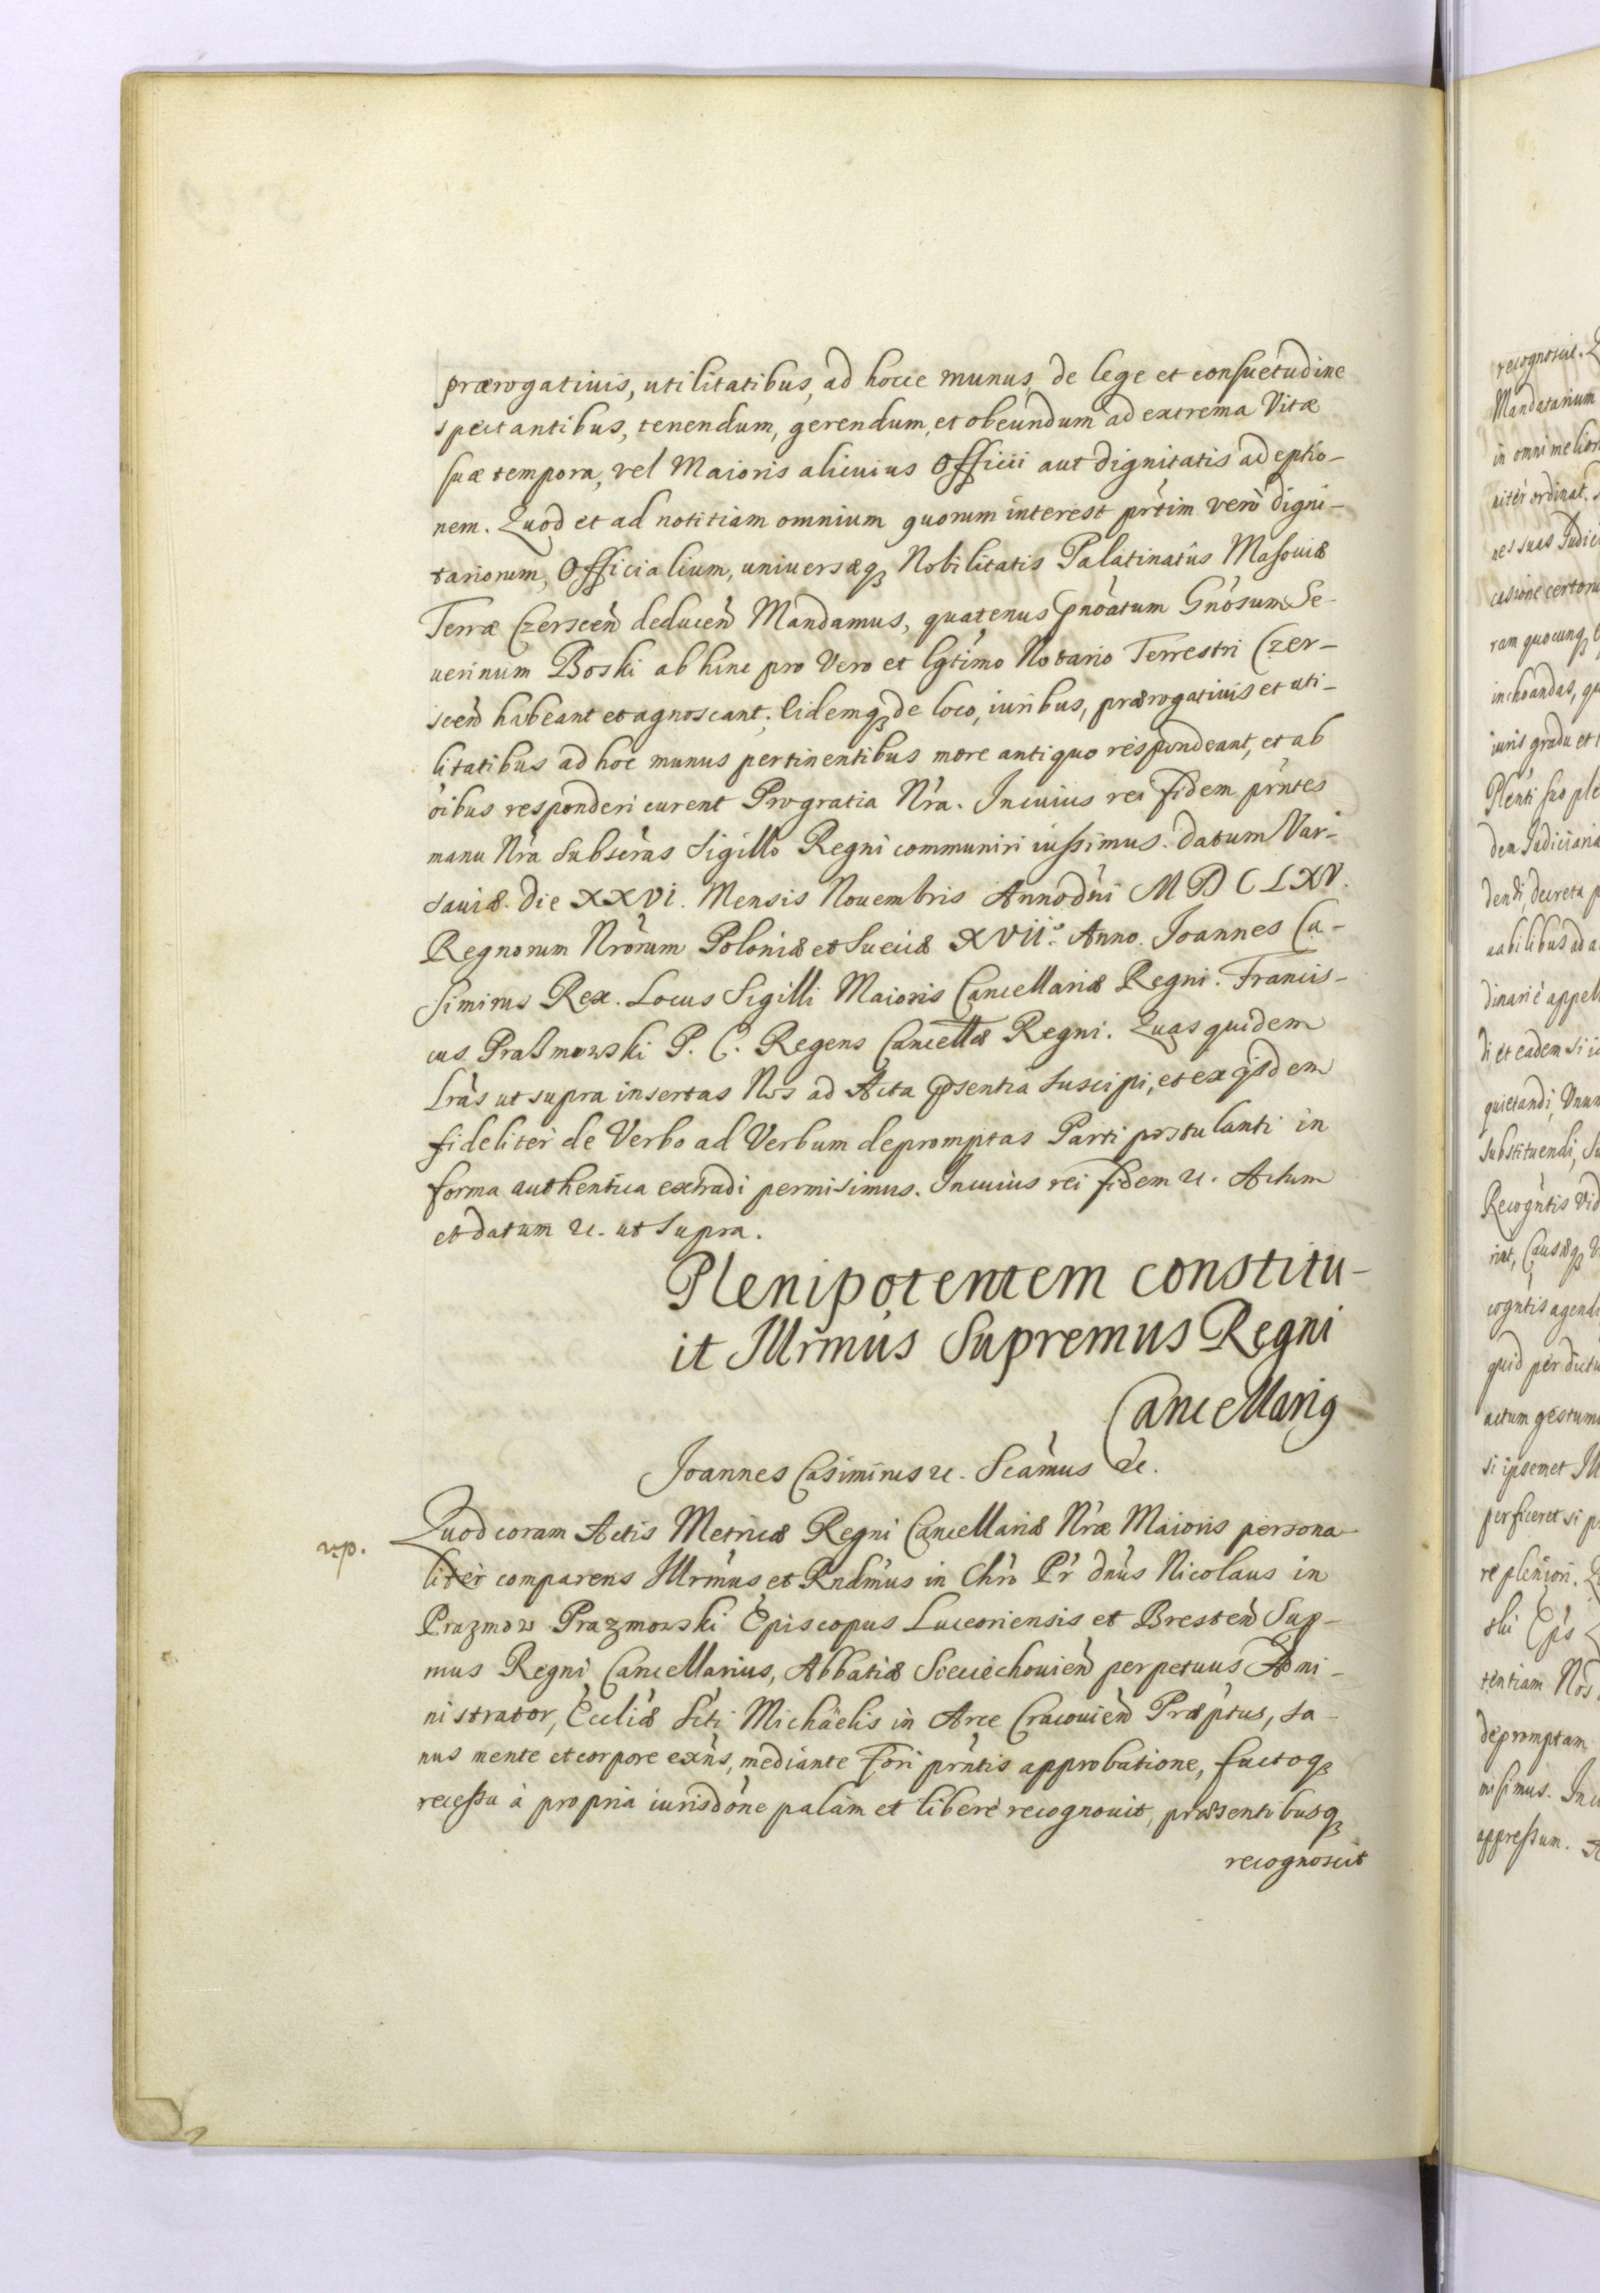 prærogatiuis, utilitatibus, ad hocce munus, de lege et consuetudine
spectantibus, tenendum, gerendum, et obeundum ad extrema Vitæ
suæ tempora, vel Maioris alicuius Officii aut dignitatis adeptio-
nem. Quod et ad notitiam omnium quorum interest prtim verò digni-
tariorum, Officialium, uniuersæq; Nobilitatis Palatinatûs Masouiæ
Terræ Czerscen̄ deducen̄ Mandamus, quatenus pnōatum Gnōsum Se-
uerinum Boski ab hinc pro Vero et lgtimo Notario Terrestri Czer-
scen̄ habeant et agnoscant, Eidemq; de loco, iuribus, prærogatiuis et uti-
litatibus ad hoc munus pertinentibus more antiquo respondeant, et ab
ōibus responderi curent Pro gratia Nrā. In cuius rei fidem prn̄tes
manu Nrā Subscrās Sigillo Regni communiri iussimus. Datum Var-
sauiæ. Die XXVI. Mensis Nouembris Anno dn̄i MDCLXV.
Regnorum Nrōrum Poloniæ et Sueciæ XVII.o Anno. Joannes Ca-
simirus Rex. Locus Sigilli Maioris Cancellariæ Regni. Francis-
cus Prażmowski P. C. Regens Cancellæ Regni. Quas quidem
Lrās ut supra insertas Nos ad Acta psentia suscipi, et ex ijsdem
fideliter de Verbo ad Verbum depromptas Parti postulanti in
forma authentica extradi permisimus. In cuius rei fidem &c. Actum
et datum &c. ut Supra.
Plenipotentem constitu-
it Illrmus Supremus Regni
Cancellarig
Joannes Casimirus &c. Scāmus &c.
Quod coram Actis Metricæ Regni Cancellariæ Nræ Maioris persona-
liter comparens Illrmus et Rndmus in Chrō Pr̄ dnūs Nicolaus in
Prazmow Prazmowski Episcopus Luceoriensis et Bresten̄ Sup-
mus Regni Cancellarius, Abbatiæ Sieciechouien̄ perpetuus Admi-
nistrator, Eccliæ Scti Michäelis in Arce Cracouien̄ Præptus, sa-
nus mente et corpore exn̄s, mediante Fori prn̄tis approbatione, factoq;
recessu à propria iurisdōne palàm et liberè recognouit, præsentibusq;
recognoscit